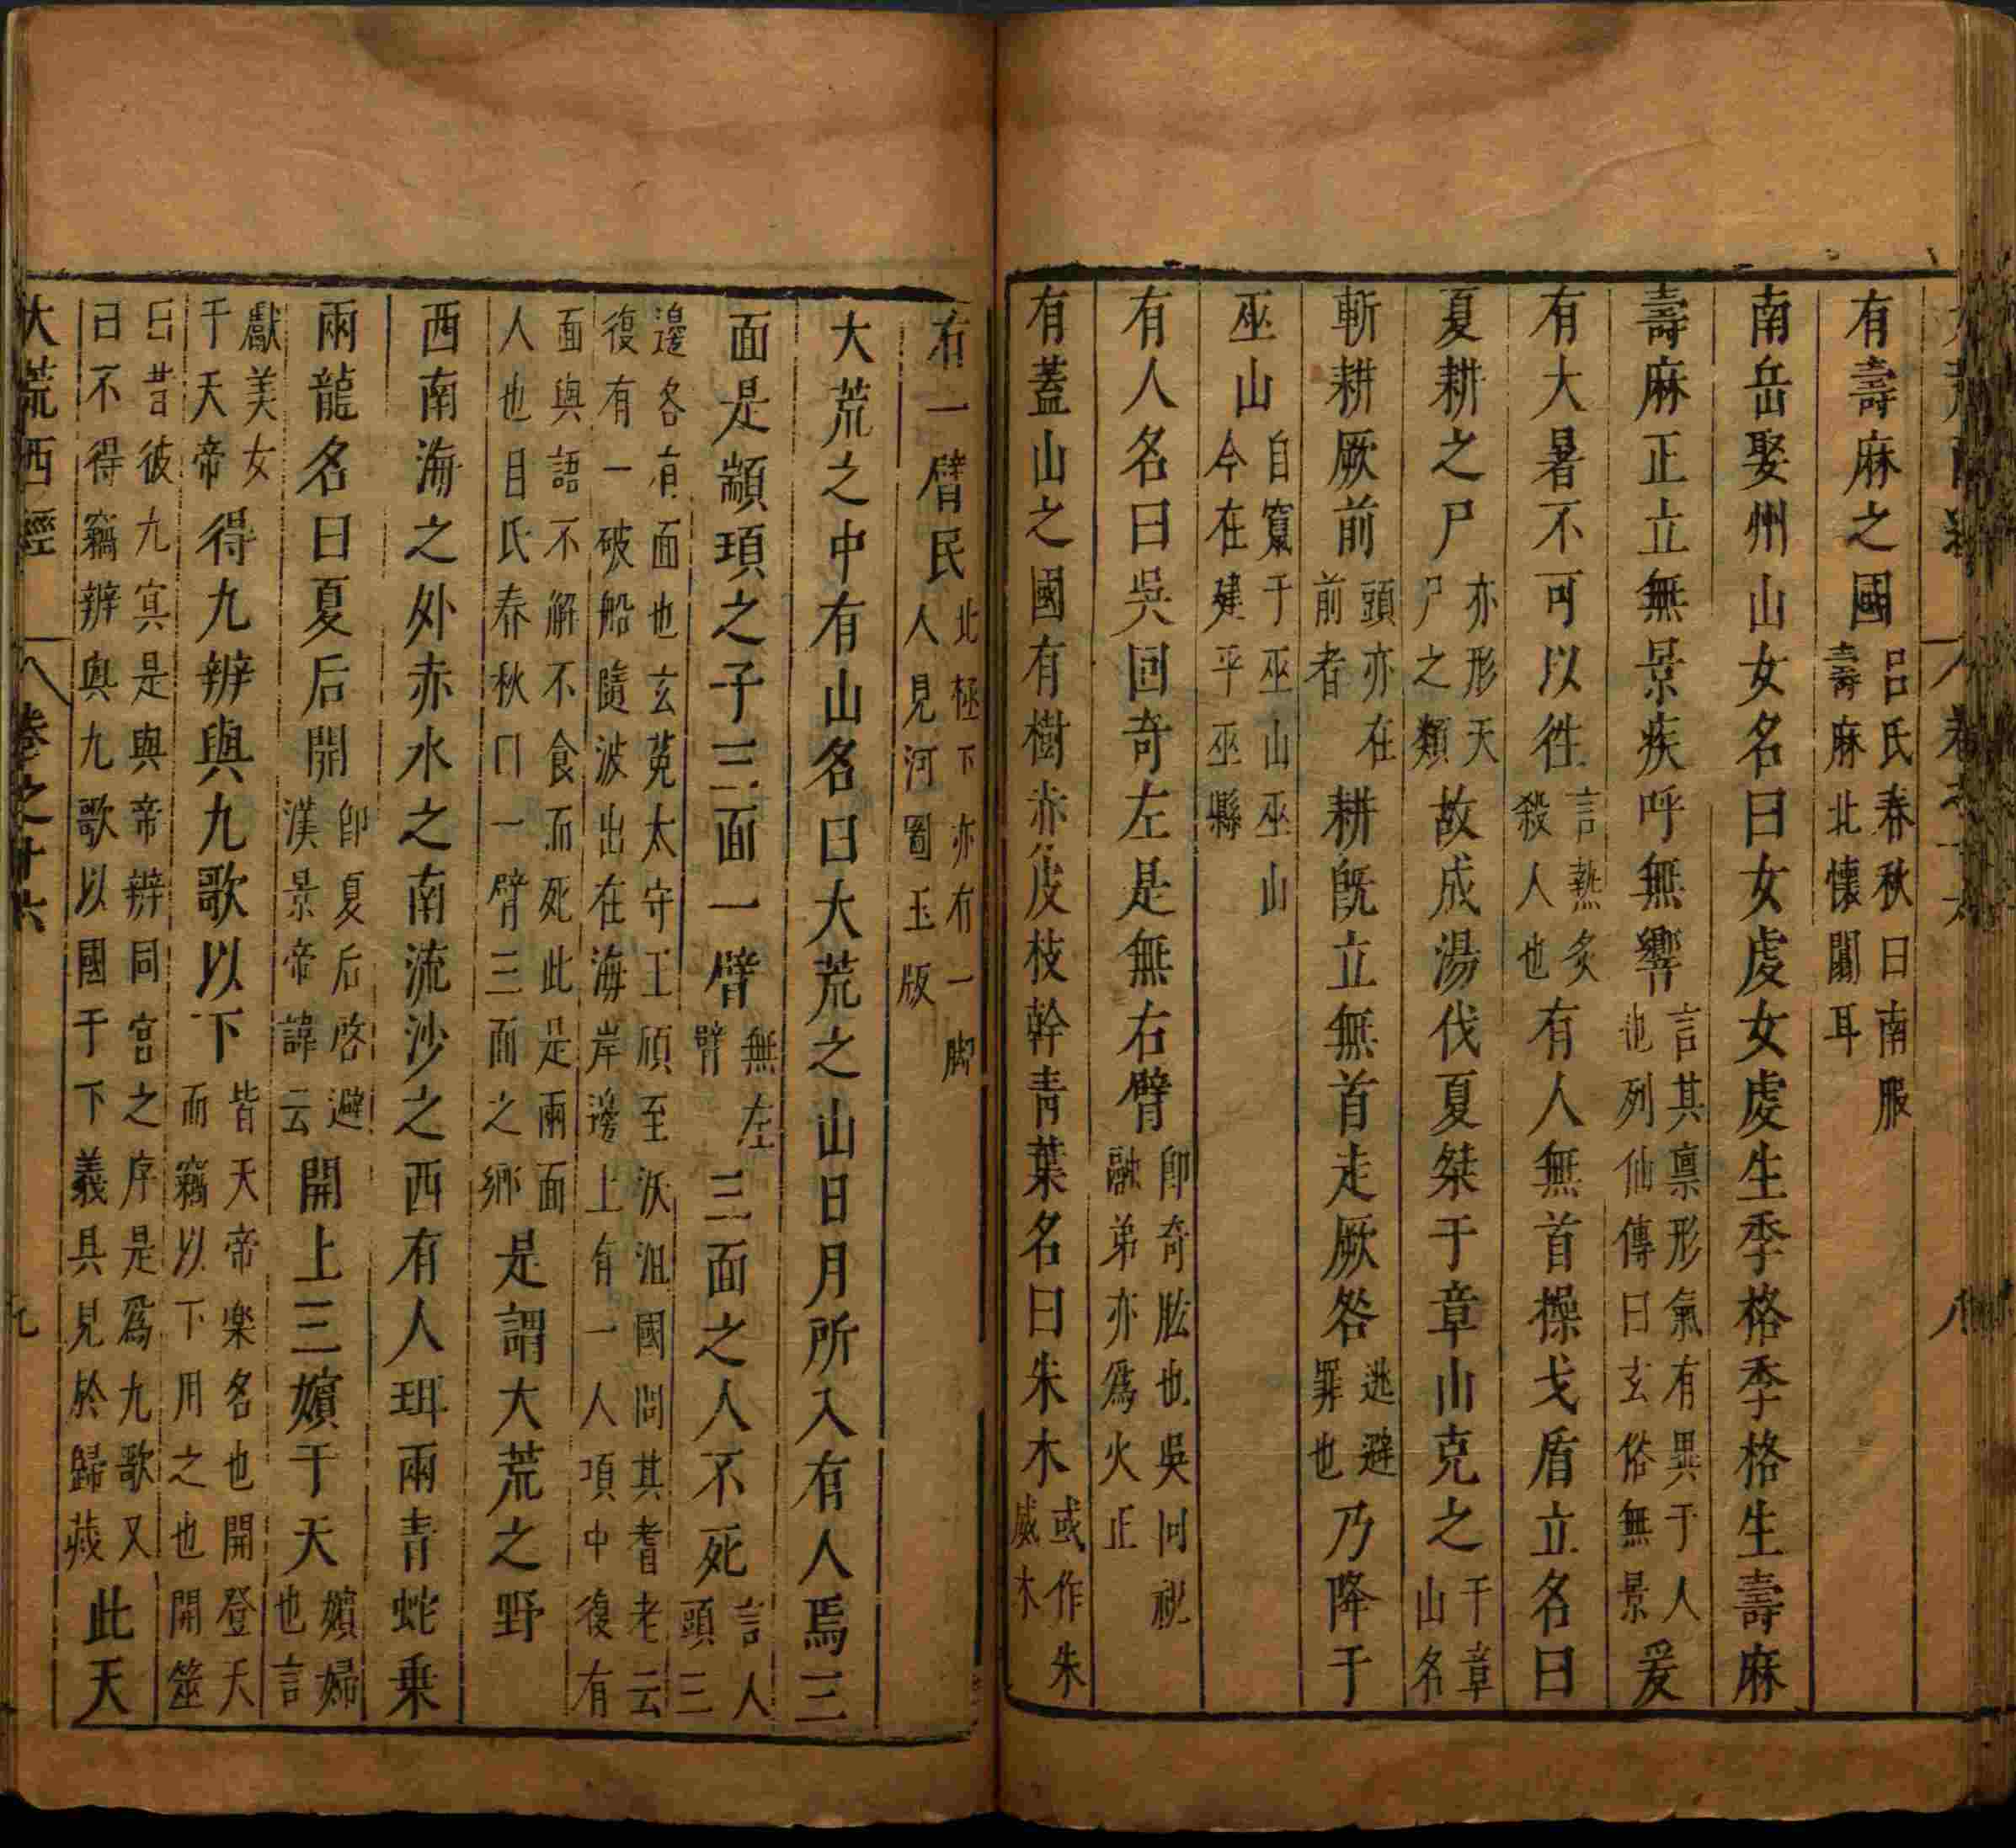 有壽麻之國呂氏春秋曰南服壽麻北懷闟耳
南岳娶州山女名曰女虔女虔生季格季格生壽麻
壽麻正立無景疾呼無響言其禀形氣有異于人也列仙傳曰玄俗無景爰
有大暑不可以徃言熱炙殺人也有人無首操戈盾立名曰
夏耕之尸亦形天尸之類故成湯伐夏桀于章山克之于章山名
斬耕厥前頭亦在前者耕旣立無首走厥咎逃避罪也乃降于
巫山自竄于巫山巫山今在建平巫縣
有人名曰吳囘奇左是無右臂卽奇肱也吳囘祝融弟亦爲火正
有蓋山之國有樹赤皮枝幹青葉名曰朱木或作朱威木
有一臂民北極下亦有一脚人見河圖玉版
大荒之中有山名曰大荒之山日月所入有人焉三
面是顓頊之子三面一臂無左臂三面之人不死言人頭三
邊各有面也玄菟太守王頎至沃沮國問其耆老云復有一破船隨波出在海岸邊上有一人項中復有
面與語不解不食而死此是兩面人也呂氏春秋曰一臂三面之鄉是謂大荒之野
西南海之外赤水之南流沙之西有人珥兩青蛇乗
兩龍名曰夏后開卽夏后啓避漢景帝諱云開上三嬪于天嬪婦也言
獻美女于天帝得九辨與九歌以下皆天帝樂名也開登天而竊以下用之也開筮
曰昔彼九冥是與帝辨同宫之序是爲九歌又曰不得竊辨與九歌以國于下義具見於歸藏此天
大荒西經　卷之十六　九